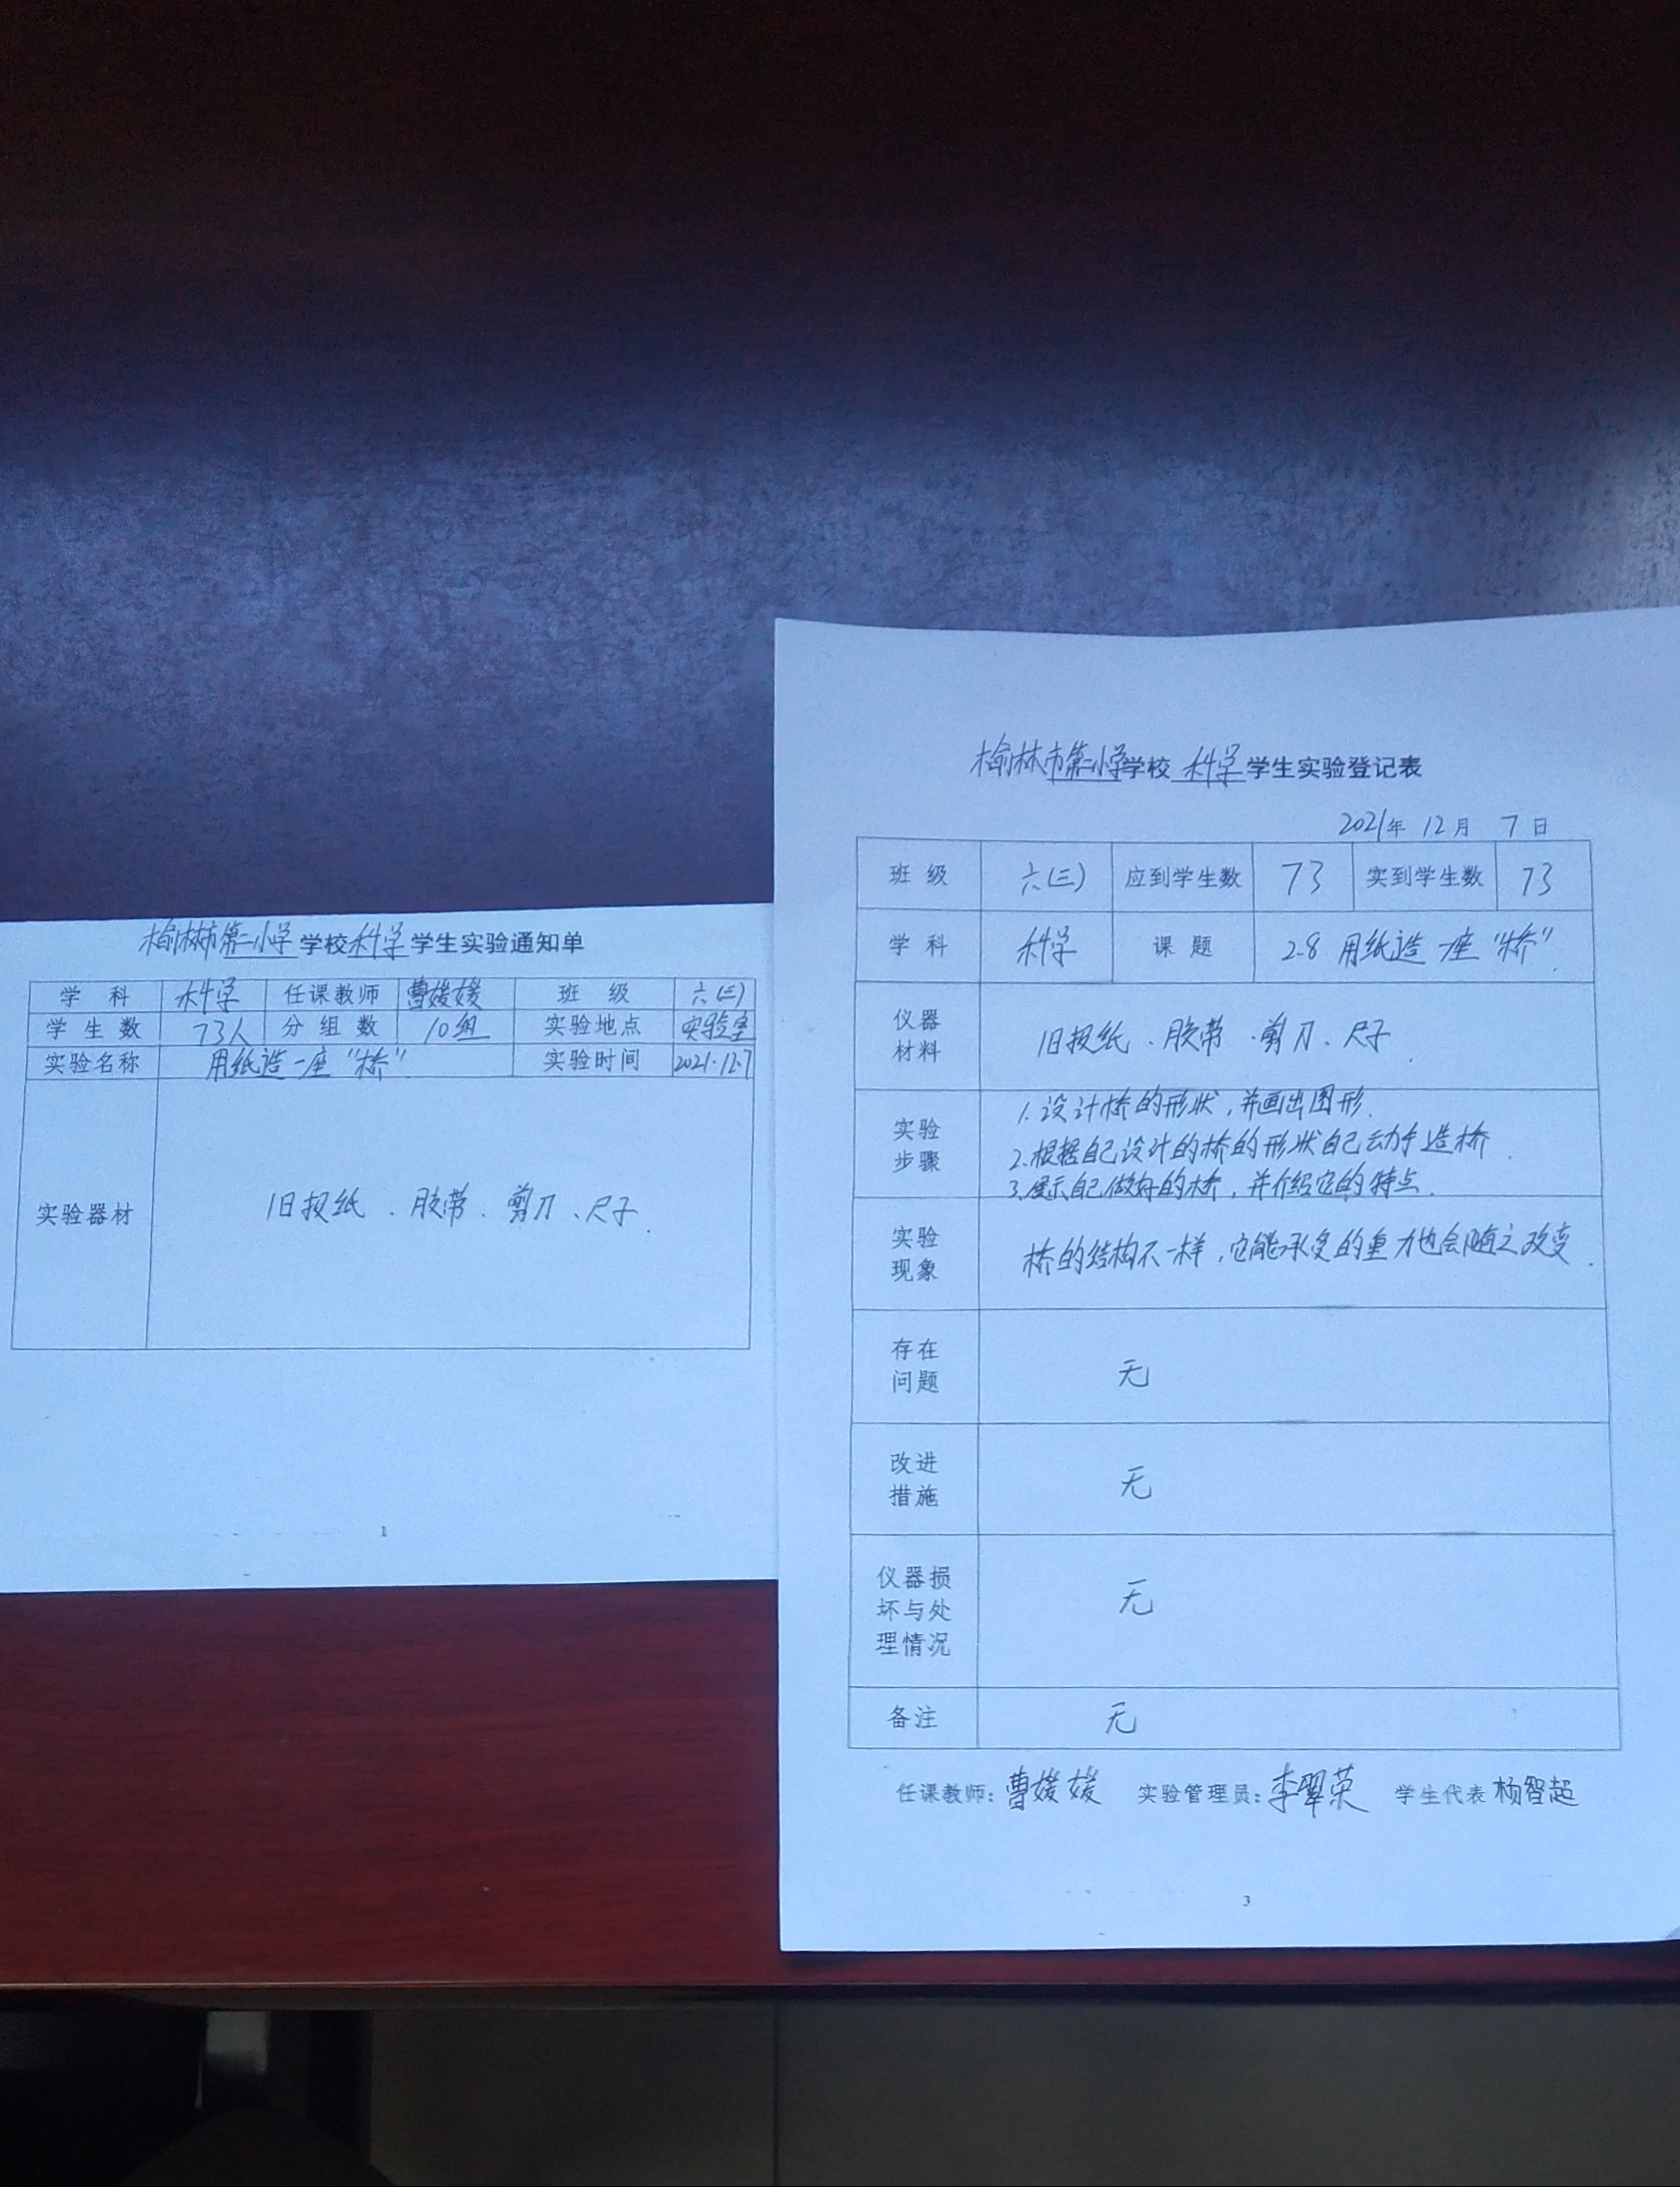 榆林市第二小学 学校 科学 学生实验通知单
学科 科学 任课教师 曹媛媛 班级 六(三)
学生数 73人 分组数 10组 实验地点 实验室
实验名称 用纸造一座“桥” 实验时间 2021.12.7
实验器材 旧报纸、胶带、剪刀、尺子.
1
榆林市第二小学学校 科学 学生实验登记表
2021年 12月 7日
班级 六(三) 应到学生数 73 实到学生数 73
学科 科学 课题 2.8 用纸造一座“桥”.
仪器
材料
旧报纸、胶带、剪刀、尺子.
实验
步骤
1.设计桥的形状,并画出图形.
2.根据自己设计的桥的形状自己动手造桥.
3.展示自己做好的桥,并介绍它的特点.
实验
现象
桥的结构不一样,它能承受的重力也会随之改变.
存在
问题
无
改进
措施
无
仪器损
坏与处
理情况
无
备注 无
任课教师:曹媛媛 实验管理员:李翠荣 学生代表 杨智超
3